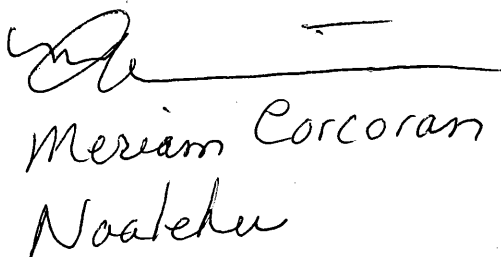 Meriam Corcoran
Naalehu